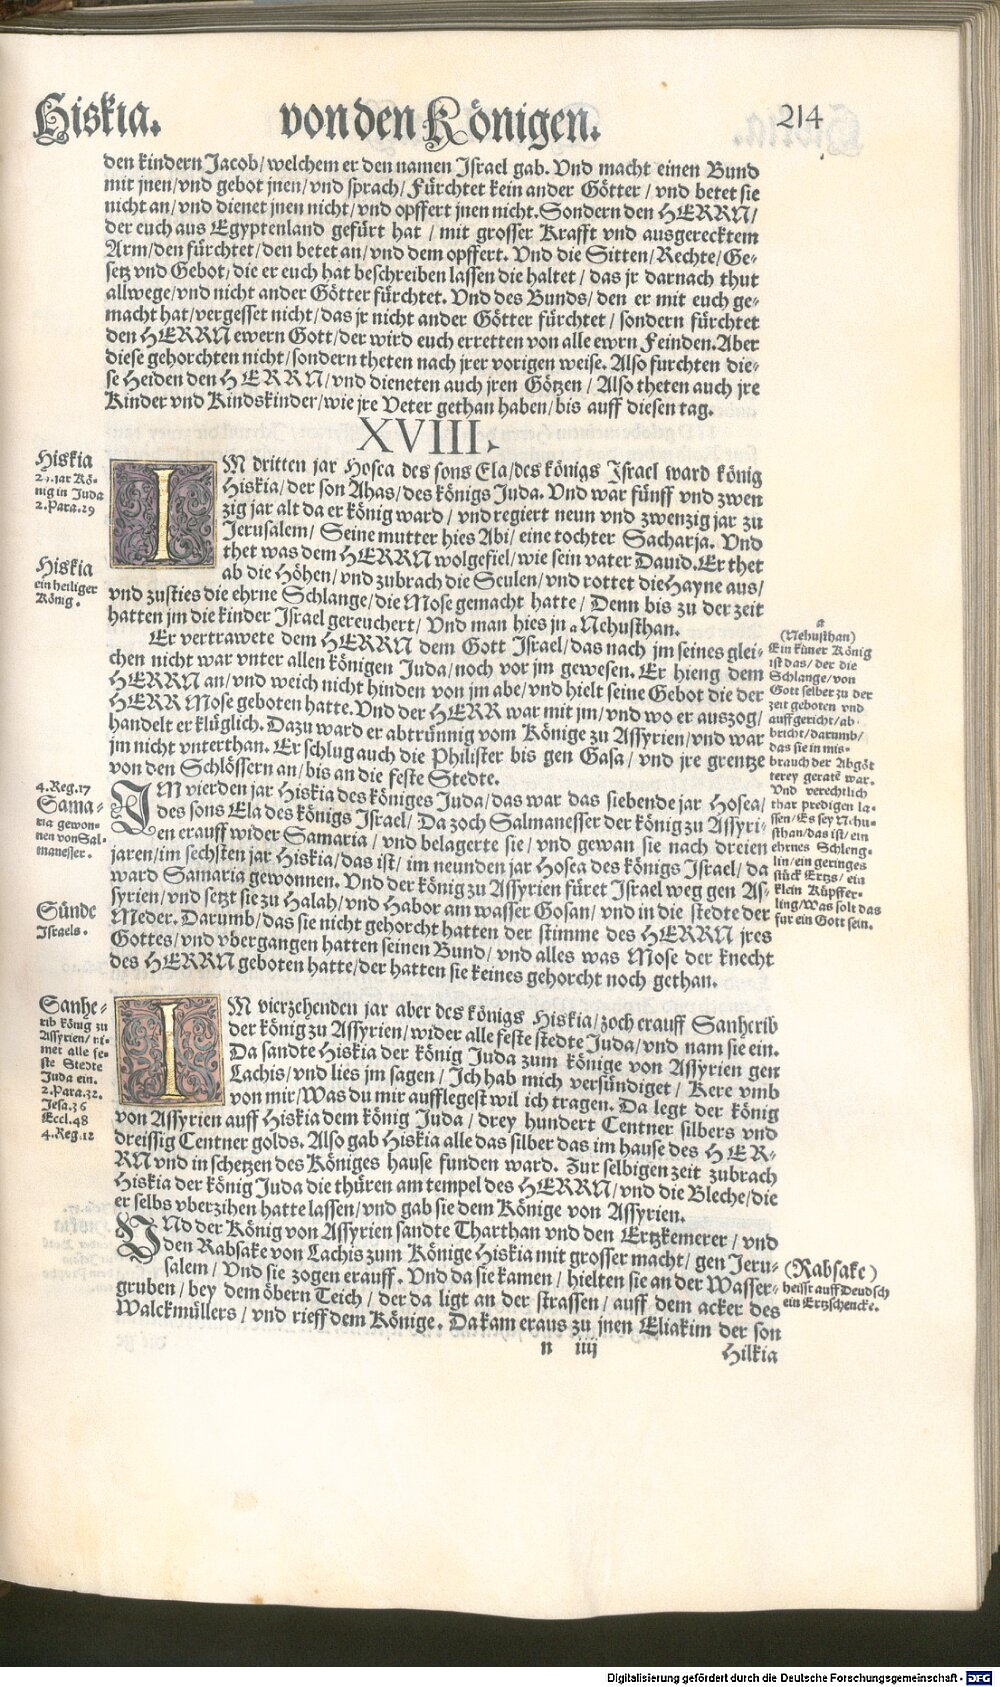 Hiskia. von den Königen. 214
den kindern Jacob/ welchem er den namen Jsrael gab. Vnd macht einen Bund
mit jnen/ vnd gebot jnen/ vnd sprach/ Fürchtet kein ander Götter / vnd betet sie
nicht an/ vnd dienet jnen nicht/ vnd opffert jnen nicht. Sondern den HERRN/
der euch aus Egyptenland gefürt hat / mit grosser Krafft vnd ausgerecktem
Arm/ den fürchtet/ den betet an/ vnd dem opffert. Vnd die Sitten/ Rechte/ Ge-
setz vnd Gebot/ die er euch hat beschreiben lassen die haltet / das jr darnach thut
allwege/ vnd nicht ander Götter fürchtet. Vnd des Bunds/ den er mit euch ge-
macht hat/ vergesset nicht/ das jr nicht ander Götter fürchtet / sondern fürchtet
den HERRN ewern Gott/ der wird euch erretten von alle ewrn Feinden. Aber
diese gehorchten nicht/ sondern theten nach jrer vorigen weise. Also furchten die-
se Heiden den HERRN/ vnd dieneten auch jren Götzen / Also theten auch jre
Kinder vnd Kindskinder/ wie jre Veter gethan haben/ bis auff diesen tag.
XVIII.
Hiskia
jar Kö-
nig in Juda
2. Para. 29
IM dritten jar Hosea des sons Ela/ des königs Jsrael ward könig
Hiskia/ der son Ahas/ des königs Juda. Vnd war fünff vnd zwen
zig jar alt da er könig ward / vnd regiert neun vnd zwenzig jar zu
Jerusalem / Seine mutter hies Abi/ eine tochter Sacharja. Vnd
thet was dem HERRN wolgefiel/ wie sein vater Dauid. Er thet
ab die Höhen/ vnd zubrach die Seulen/ vnd rottet die Hayne aus/
vnd zusties die ehrne Schlange/ die Mose gemacht hatte / Denn bis zu der zeit
hatten jm die kinder Jsrael gereuchert/ Vnd man hies jn a Nehusthan.
Hiskia
ein heiliger
König.
Er vertrawete dem HERRN dem Gott Jsrael/ das nach jm seines glei-
chen nicht war vnter allen königen Juda/ noch vor jm gewesen. Er hieng dem
HERRN an/ vnd weich nicht hinden von jm abe/ vnd hielt seine Gebot die der
HERR Mose geboten hatte. Vnd der HERR war mit jm/ vnd wo er auszog/
handelt er klüglich. Dazu ward er abtrünnig vom Könige zu Assyrien/ vnd war
jm nicht vnterthan. Er schlug auch die Philister bis gen Gasa/ vnd jre grentze
von den Schlössern an/ bis an die feste Stedte.
a
(Nehusthan)
Ein küner König
ist das/ der die
Schlange/ von
Gott selber zu der
zeit geboten vnd
auffgericht/ ab-
bricht/ darumb/
das sie in mis-
brauch der Abgöt
terey geratē war.
Vnd verechtlich
thar predigen la-
ssen/ Es sey Nehu-
sthan/ das ist/ ein
ehrnes Schleng-
lin/ ein geringes
stück Ertzs/ ein
klein Küpffer-
ling/ Was solt das
fur ein Gott sein.
4. Reg. 17
Sama-
ria gewon-
nen von Sal-
manesser.
IM vierden jar Hiskia des königes Juda/ das war das siebende jar Hosea/
des sons Ela des königs Jsrael/ Da zoch Salmanesser der könig zu Assyri-
en erauff wider Samaria / vnd belagerte sie/ vnd gewan sie nach dreien
jaren/ im sechsten jar Hiskia/ das ist/ im neunden jar Hosea des königs Jsrael/ da
ward Samaria gewonnen. Vnd der könig zu Assyrien füret Jsrael weg gen As-
syrien/ vnd setzt sie zu Halah/ vnd Habor am wasser Gosan/ vnd in die stedte der
Meder. Darumb/ das sie nicht gehorcht hatten der stimme des HERRN jres
Gottes/ vnd vbergangen hatten seinen Bund/ vnd alles was Mose der knecht
des HERRN geboten hatte/ der hatten sie keines gehorcht noch gethan.
Sünde
Jsraels.
Sanhe-
rib könig zu
Assyrien/ ni-
mer alle fe-
ste Stedte
Juda ein.
2. Para. 32.
Jesa. 36
Eccl. 48
4. Reg. 12
IM vierzehenden jar aber des königs Hiskia/ zoch erauff Sanherib
der könig zu Assyrien/ wider alle feste stedte Juda/ vnd nam sie ein.
Da sandte Hiskia der könig Juda zum könige von Assyrien gen
Lachis/ vnd lies jm sagen/ Jch hab mich versündiget/ Kere vmb
von mir/ Was du mir aufflegest wil ich tragen. Da legt der könig
von Assyrien auff Hiskia dem könig Juda/ drey hundert Centner silbers vnd
dreissig Centner golds. Also gab Hiskia alle das silber das im hause des HER-
RN vnd in schetzen des Königes hause funden ward. Zur selbigen zeit zubrach
Hiskia der könig Juda die thüren am tempel des HERRN/ vnd die Bleche/ die
er selbs vberzihen hatte lassen/ vnd gab sie dem Könige von Assyrien.
VNd der König von Assyrien sandte Tharthan vnd den Ertzkemerer / vnd
den Rabsake von Lachis zum Könige Hiskia mit grosser macht/ gen Jeru-
salem / Vnd sie zogen erauff. Vnd da sie kamen / hielten sie an der Wasser-
gruben/ bey dem öbern Teich / der da ligt an der strassen/ auff dem acker des
Walckmüllers / vnd rieff dem Könige. Da kam eraus zu jnen Eliakim der son
(Rabsake)
heisst auff Deudsch
ein Ertzschencke.
n iiij Hilkia
Digitalisierung gefördert durch die Deutsche Forschungsgemeinschaft - DFG